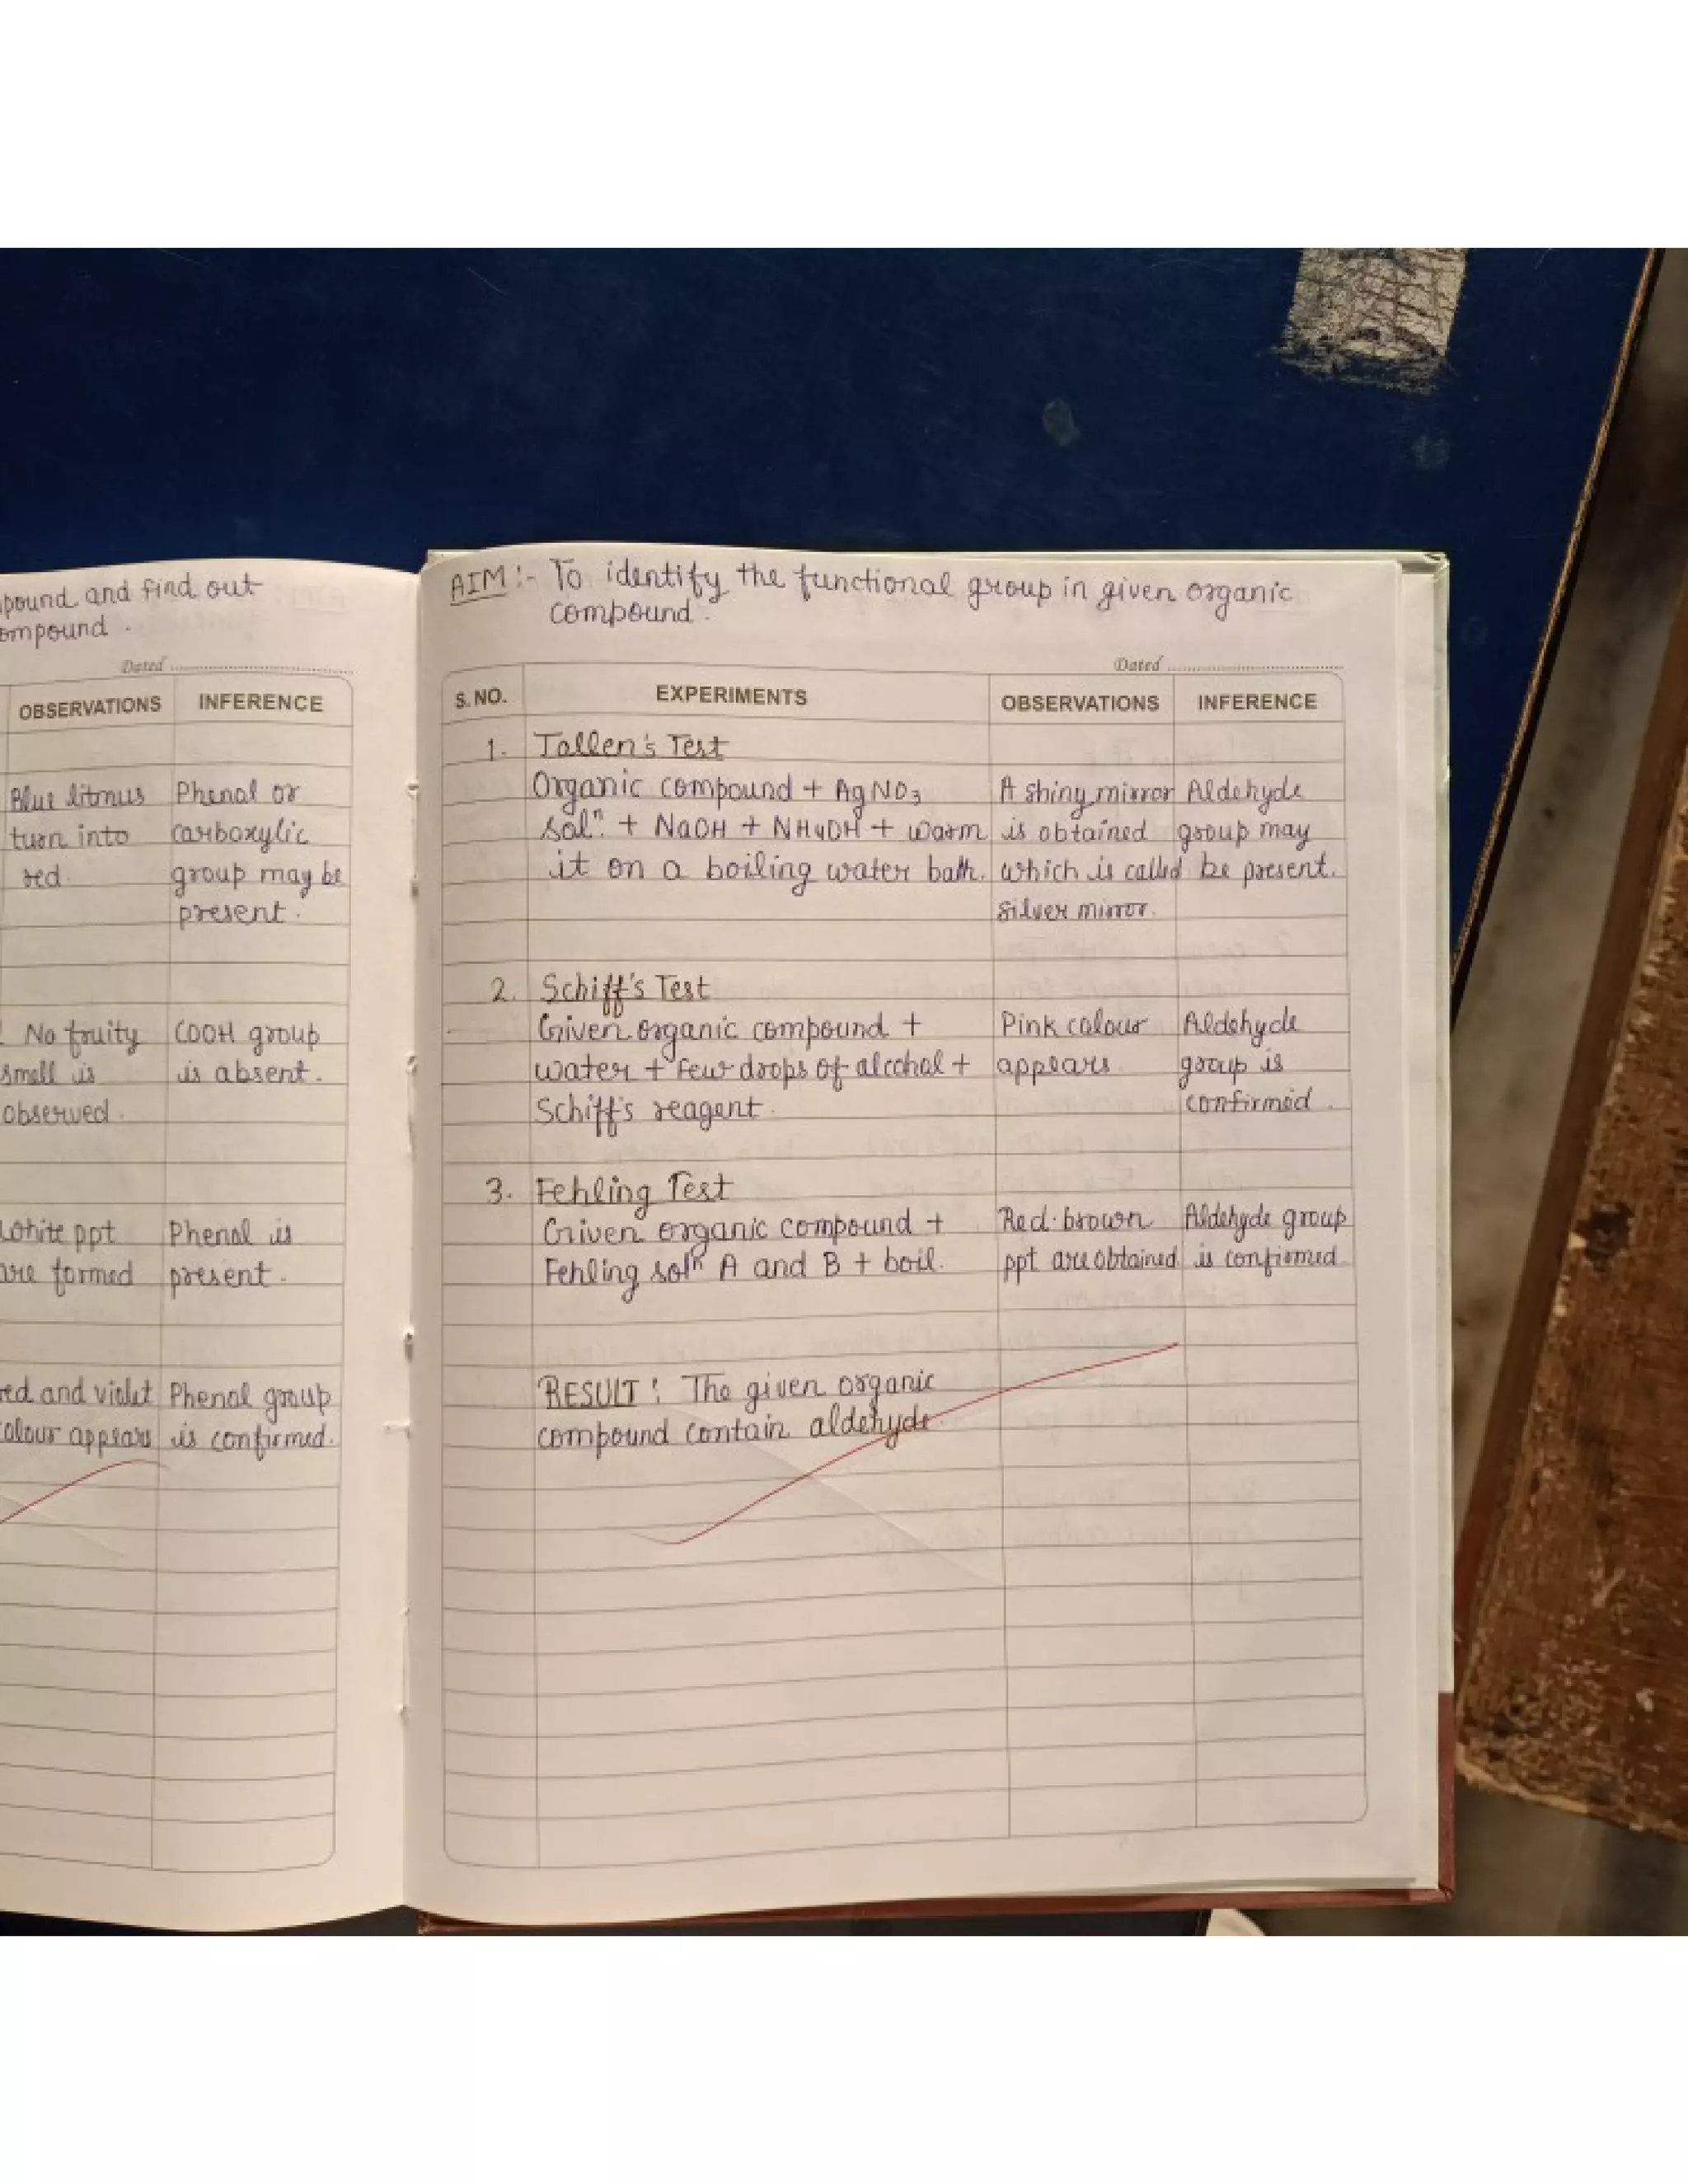 pound and find out
ompound.
Dated
OBSERVATIONS INFERENCE
Blue litmus Phenol or
turn into carboxylic
red. group may be
present.
No fruity COOH group
smell is is absent.
observed.
White ppt Phenol is
are formed present.
red and violet Phenol group
colour appears is confirmed.
AIM :- To identify the functional group in given organic
compound.
Dated
S. NO. EXPERIMENTS OBSERVATIONS INFERENCE
1. Tollen's Test
Organic compound + AgNO3 A shiny mirror Aldehyde
solⁿ. + NaOH + NH4OH + warm is obtained group may
it on a boiling water bath. which is called be present.
silver mirror.
2. Schiff's Test
Given organic compound + Pink colour Aldehyde
water + few drops of alcohol + appears group is
Schiff's reagent. confirmed.
3. Fehling Test
Given organic compound + Red-brown Aldehyde group
Fehling solⁿ A and B + boil. ppt are obtained. is confirmed.
RESULT : The given organic
compound contain aldehyde.